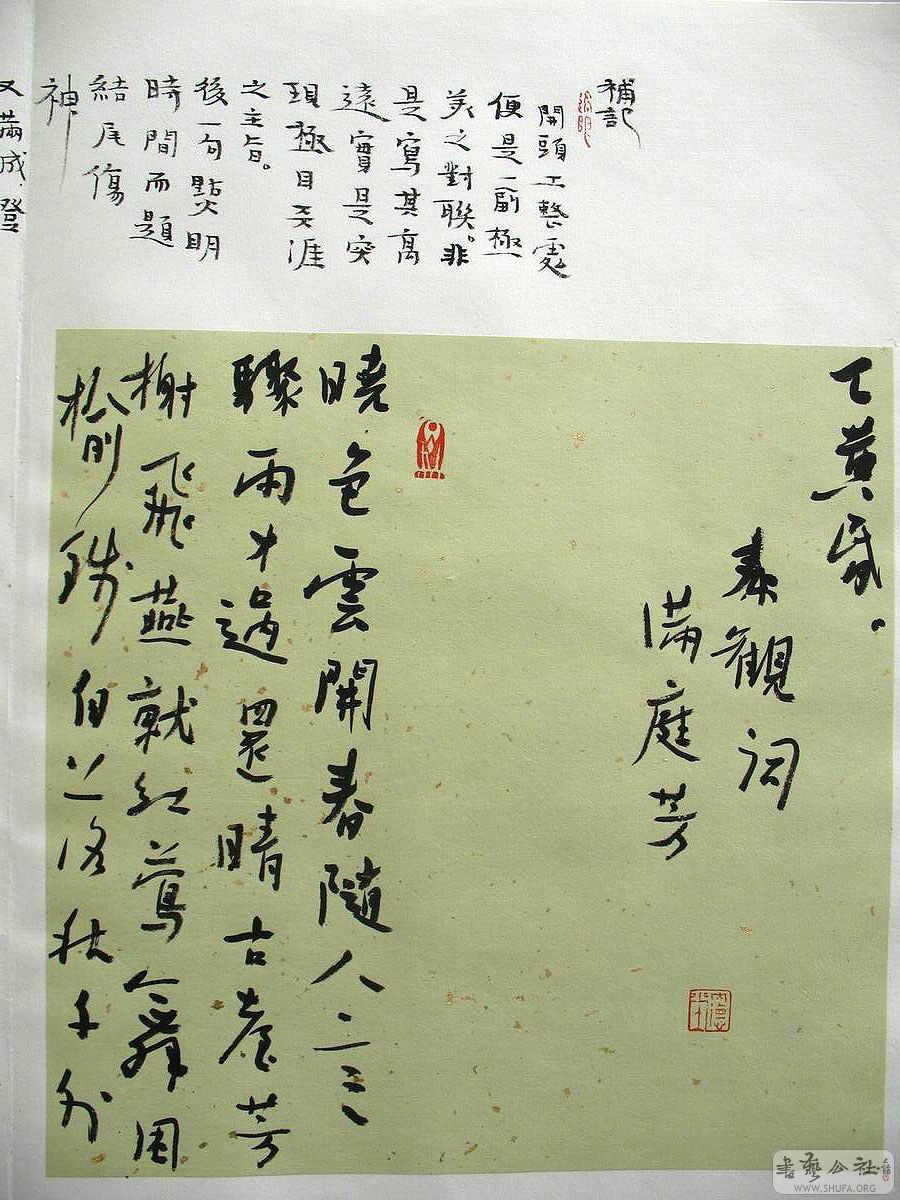 補記
開頭工整處
便是一副極
美之對聯。非
是寫其高
遠實是突
現極目无涯
之主旨。
後一句點明
時間而題
結尾傷
神
又滿成登
黄昏。
秦觀詞
滿庭芳
曉色雲開春隨人意
驟雨才過還晴古臺芳
榭飛燕就紅鶯舞困
榆錢自落秋千外
書藝公社
WWW.SHUFA.ORG